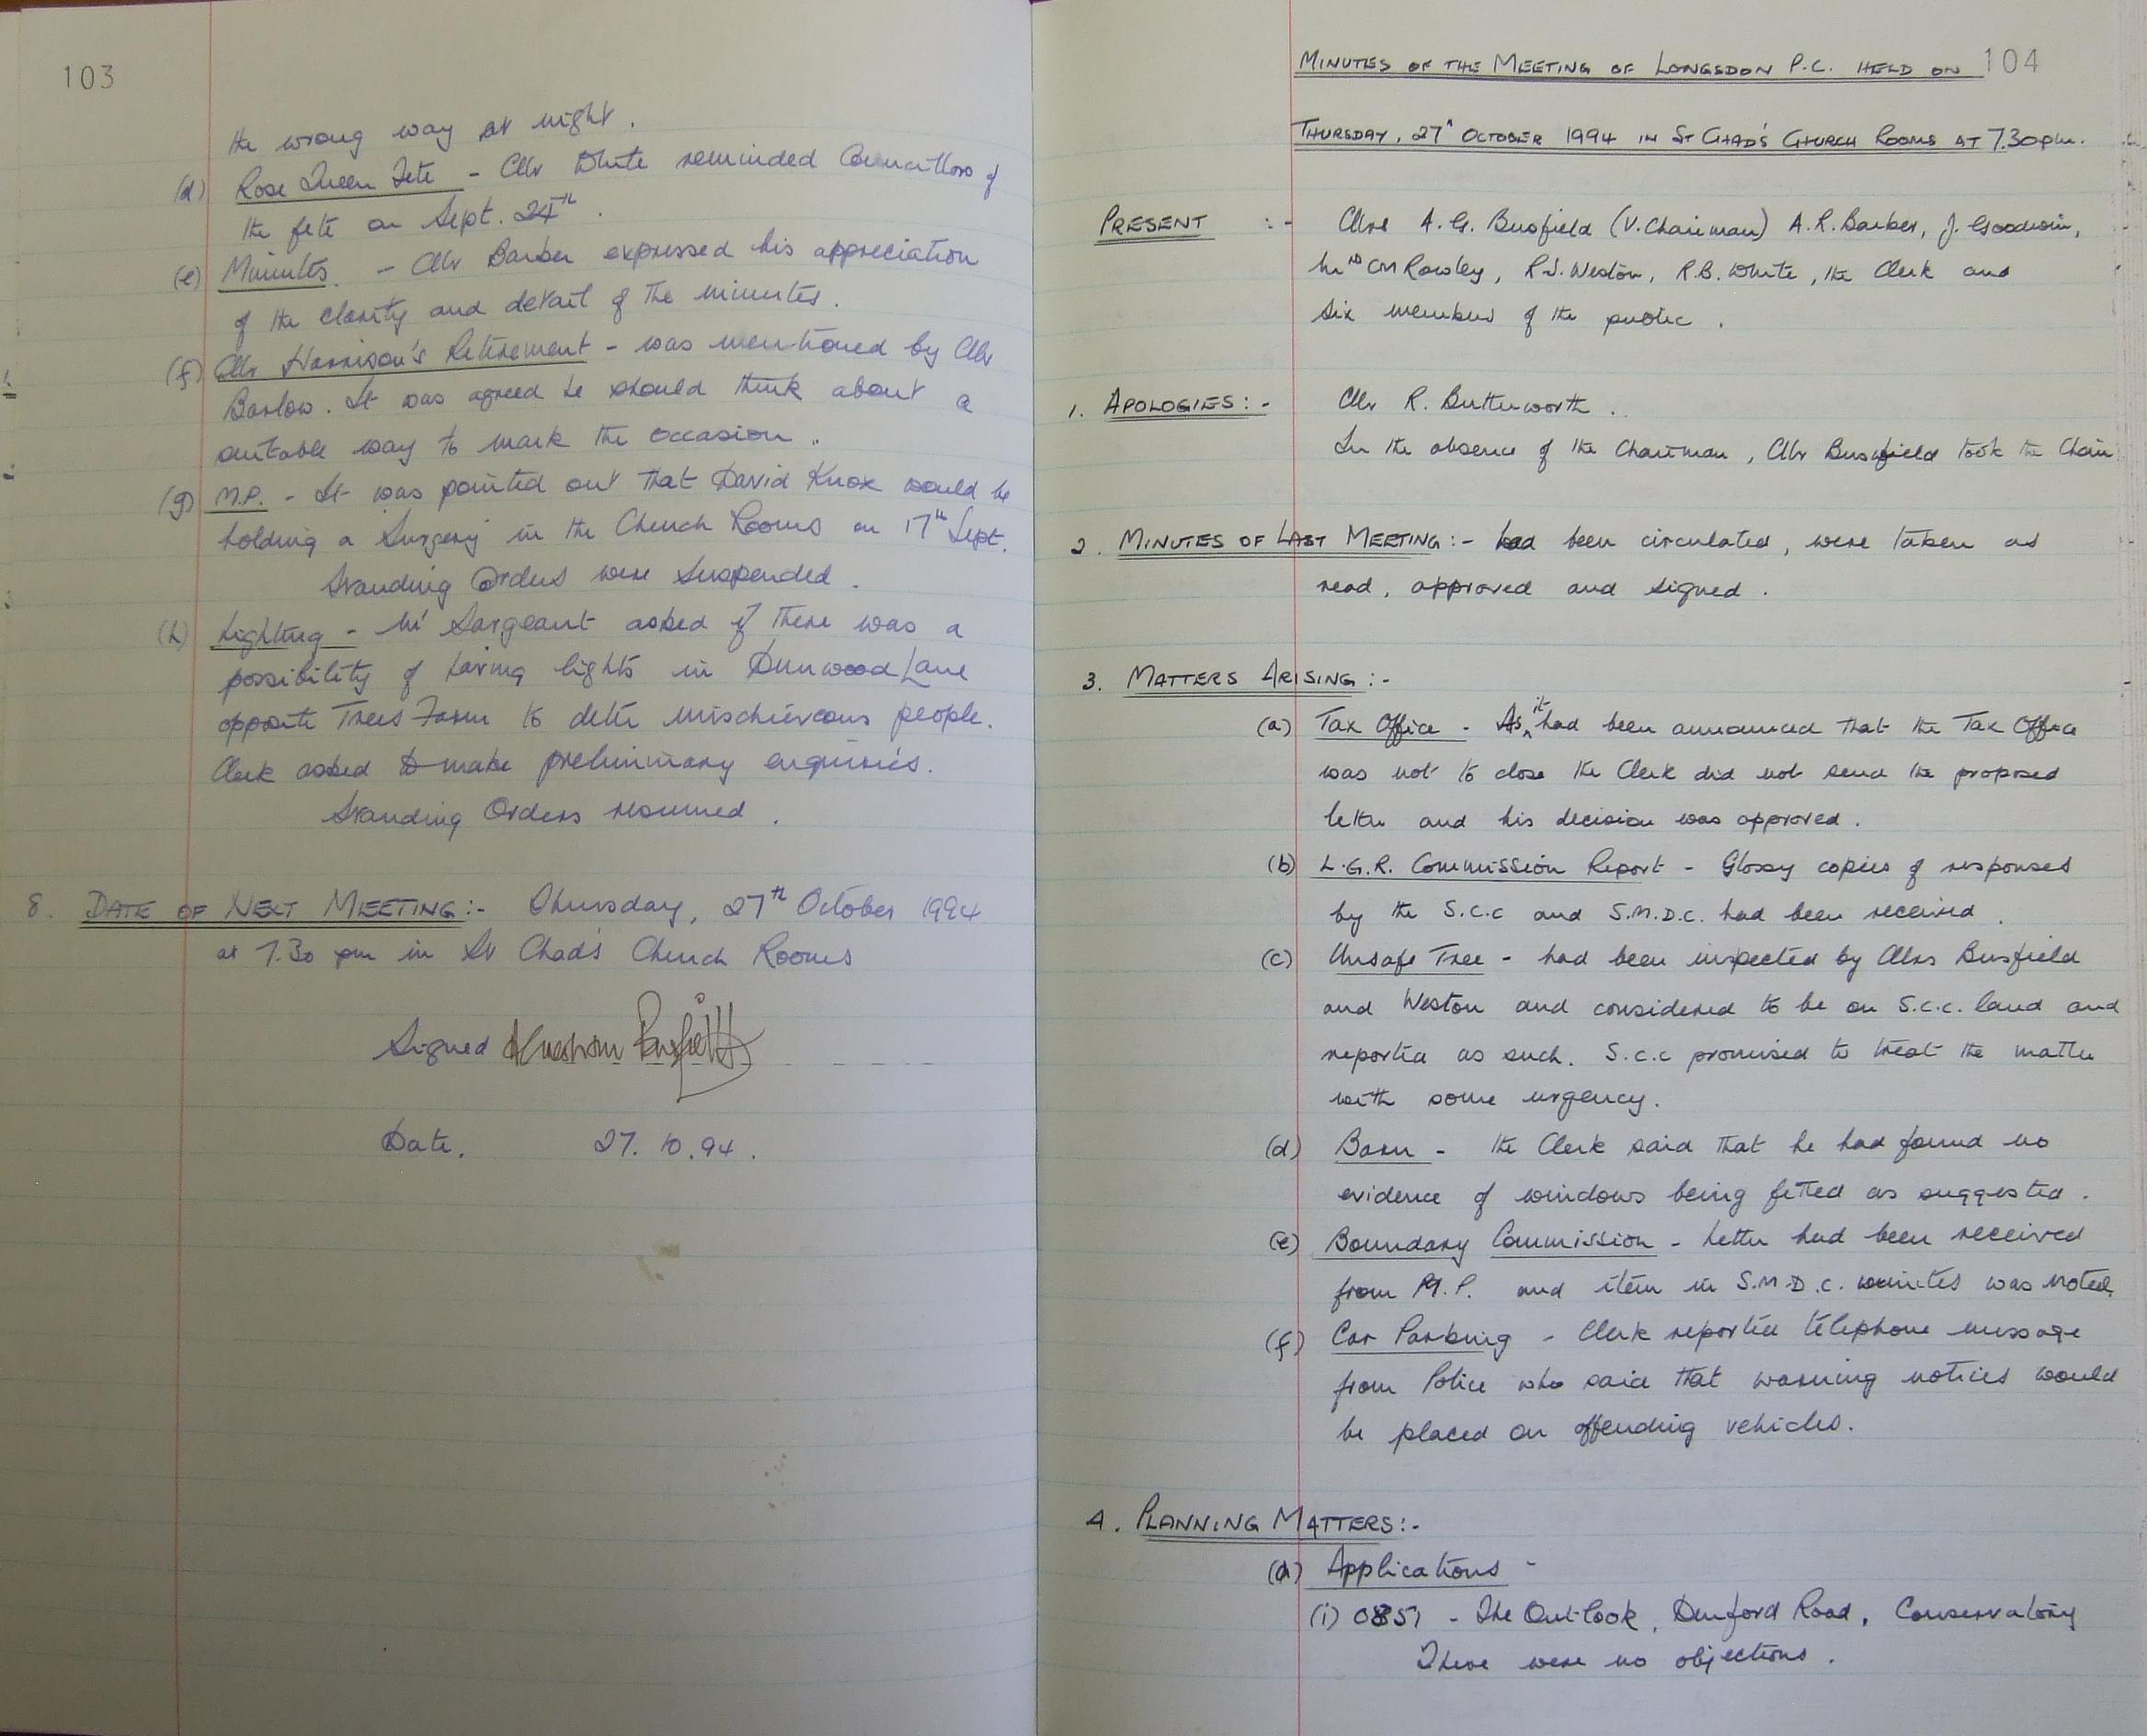 103
the wrong way at night.
(d) Rose Queen Fete - Cllr White reminded Councillors of
the fete on Sept. 24th.
(e) Minutes - Cllr Barber expressed his appreciation
of the clarity and detail of the minutes.
(f) Cllr Harrison's Retirement - was mentioned by Cllr
Barlow. It was agreed he should think about a
suitable way to mark the occasion.
(g) M.P. - It was pointed out that David Knox would be
holding a Surgery in the Church Rooms on 17th Sept.
Standing Orders were Suspended.
(h) Lighting - Mr Sargeant asked if there was a
possibility of having lights in Dunwood Lane
opposite Trees Farm to deter mischievous people.
Clerk asked to make preliminary enquiries.
Standing Orders resumed.
8. DATE OF NEXT MEETING:- Thursday, 27th October 1994
at 7.30 pm in St Chad's Church Rooms
Signed
Date. 27.10.94.
104
MINUTES OF THE MEETING OF LONGSDON P.C. HELD ON
THURSDAY, 27th OCTOBER 1994 IN ST CHAD'S CHURCH ROOMS AT 7.30pm.
PRESENT :- Cllrs A.G. Busfield (V.Chairman) A.R. Barber, J. Goodwin,
Mrs CM Rowley, R.J. Weston, R.B. White, the Clerk and
six members of the public.
1. APOLOGIES:- Cllr R. Butterworth.
In the absence of the Chairman, Cllr Busfield took the Chair
2. MINUTES OF LAST MEETING:- had been circulated, were taken as
read, approved and signed.
3. MATTERS ARISING:-
(a) Tax Office - As it had been announced that the Tax Office
was not to close the Clerk did not send the proposed
letter and his decision was approved.
(b) L.G.R. Commission Report - Glossy copies of responses
by the S.C.C and S.M.D.C. had been received.
(c) Unsafe Tree - had been inspected by Cllrs Busfield
and Weston and considered to be on S.C.C. land and
reported as such. S.C.C promised to treat the matter
with some urgency.
(d) Barn - the Clerk said that he had found no
evidence of windows being fitted as suggested.
(e) Boundary Commission - Letter had been received
from M.P. and item in S.M.D.C. minutes was noted.
(f) Car Parking - Clerk reported telephone message
from Police who said that warning notices would
be placed on offending vehicles.
4. PLANNING MATTERS:-
(a) Applications -
(i) 0851 - The Outlook, Denford Road, Conservatory
There were no objections.